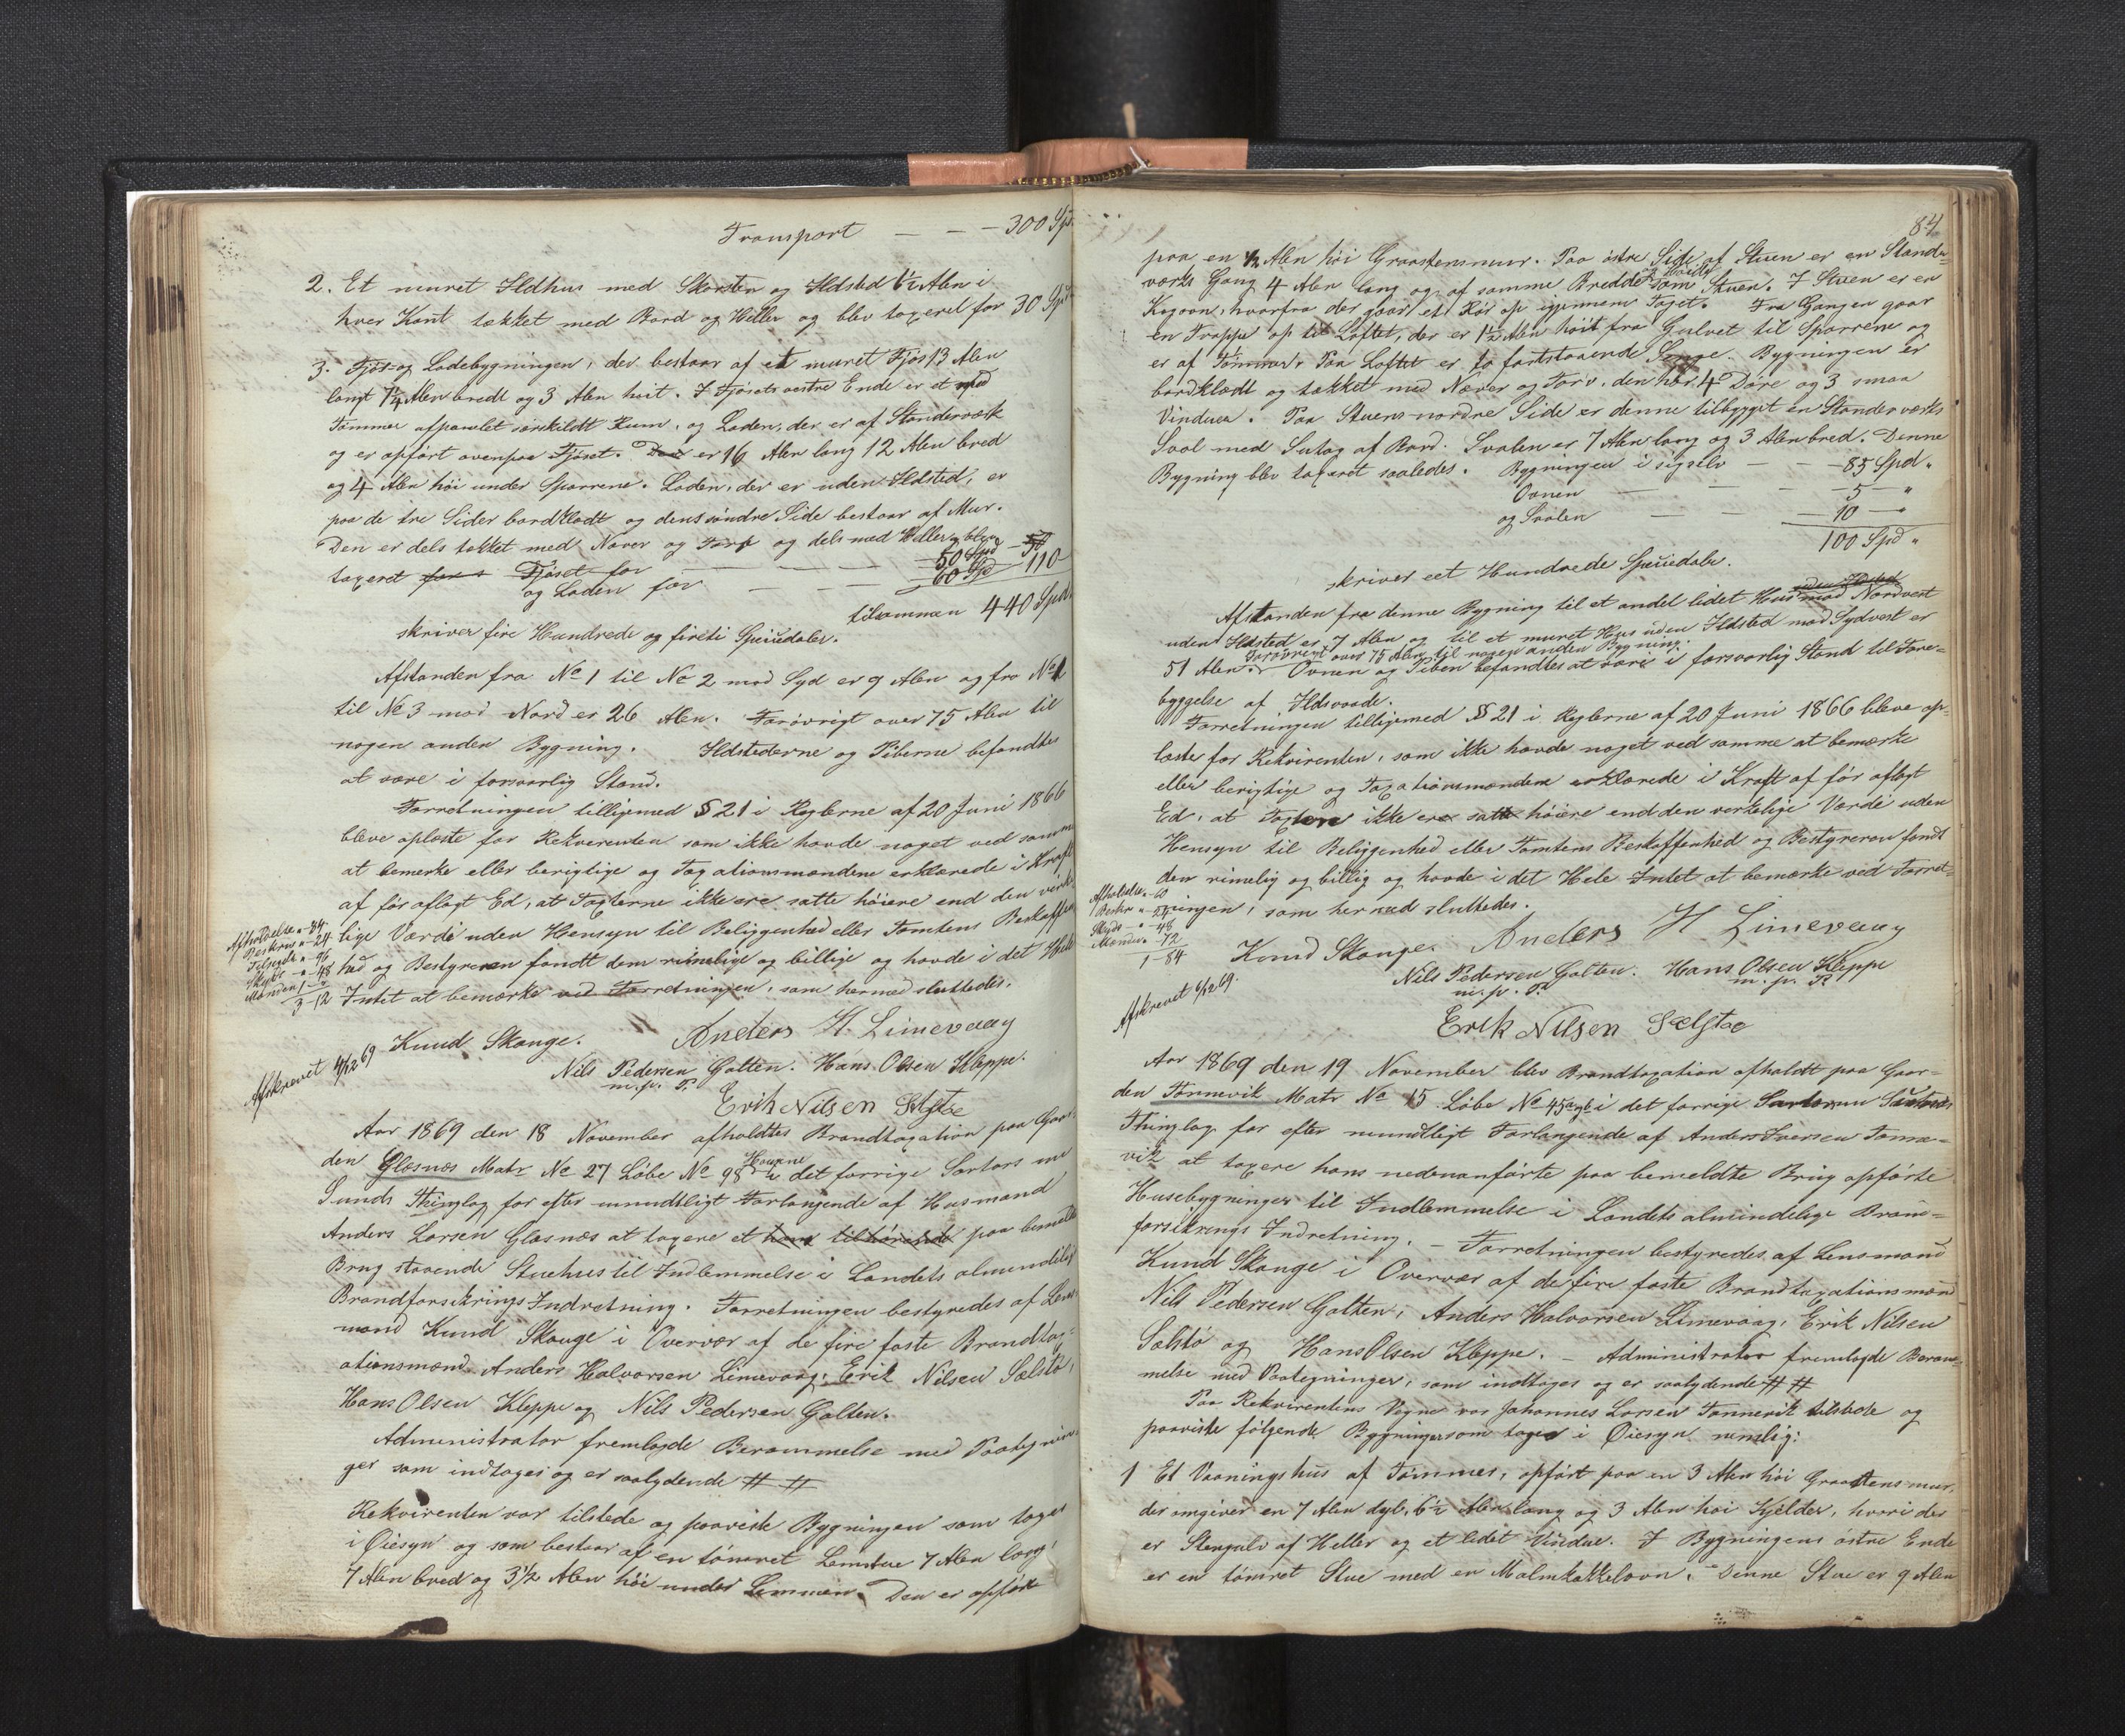 Transport — — — 300 Spd
2. Et muret Ildhus med Skorsten og Ildsted 6½ Alen i
hver Kant tækket med Bord og Heller og blev taxeret for 30 Spd
3. Fjøs og Ladebygningen, der bestaar af et muret Fjøs 13 Alen
langt 7¼ Alen bredt og 3 Alen høit. I Fjøsets vestre Ende er et med
Tømmer afpanelet særskildt Rum, og Laden, der er af Standerværk
og er opført ovenpaa Fjøset. Den er 16 Alen lang 12 Alen bred
og 4 Alen høi under Sparrene. Laden, der er uden Ildsted, er
paa de tre Sider bordklædt og dens søndre Side bestaar af Mur.
Den er dels tækket med Næver og Torv og dels med Heller og blev
taxeret for: Fjøset for — — — 50 Spd
og Laden for — — 60 Spd 110
tilsammen 440 Spd.
skriver fire Hundrede og fireti Speciedaler.
Afstanden fra No 1 til No 2 mod Syd er 9 Alen og fra No 1
til No 3 mod Nord er 26 Alen. Forøvrigt over 75 Alen til
nogen anden Bygning. Ildstederne og Piberne befandtes
at være i forsvarlig Stand.
Forretningen tilligemed § 21 i Reglerne af 20 Juni 1866
bleve oplæste for Rekvirenten som ikke havde noget ved samme
at bemerke eller berigtige og Taxationsmændene erklærede i Kraft
af før aflagt Ed, at Taxterne ikke ere satte høiere end den virke-
lige Værdi uden Hensyn til Beliggenhed eller Tomtens Beskaffen-
hed og Bestyreren fandt dem rimelige og billige og havde i det Hele
Intet at bemærke ved Forretningen, som hermed sluttedes.
Afholdelse " - 84
Beskriv " - 24
" - 96
Skyds - " - 48
Mændene 1 - "
3 - 12
Afskrevet 4/12 69
Knud Skauge. Anders H. Limevaag
Nils Pedersen Golten. Hans Olsen Kleppe.
m. p. P.
Erik Nilsen Selstøe
Aar 1869 den 18 November afholdtes Brandtaxation paa Gaar-
den Glæsnæs Matr No 27 Løbe No 98 i det forrige Sartors nu
Sunds Thinglag for efter mundtligt Forlangende af Husmand
Anders Larsen Glæsnæs at taxere et ham tilhørende paa bemeldte
Brug staaende Stuehus til Indlemmelse i Landets almindelige
Brandforsikrings Indretning. Forretningen bestyredes af Lens-
mand Knud Skauge i Overvær af de fire faste Brandtax-
ationsmænd Anders Halvorsen Limevaag, Erik Nilsen Selstø,
Hans Olsen Kleppe og Nils Pedersen Golten.
Administrator fremlagde Berammelse med Paategnin-
ger som indtages og er saalydende # #
Rekvirenten var tilstede og paaviste Bygningen som toges
i Øiesyn og som bestaar af en tømret Lemstue 7 Alen lang,
7 Alen bred og 3½ Alen høi under Lemmen. Den er opført
84
paa en ½ Alen høi Graastensmur. Paa østre Side af Stuen er en Stander-
værks Gang 4 Alen lang og af samme Bredde og Høide som Stuen. I Stuen er en
Kogovn, hvorfra der gaar et Rør op igjennem Taget. Fra Gangen gaar
en Trappe op til Loftet, der er 1½ Alen høit fra Gulvet til Sparrene og
er af Tømmer. Paa Loftet er to fastslaaende Senge. Bygningen er
bordklædt og tækket med Næver og Torv, den har 4 Døre og 3 smaa
Vinduer. Paa Stuens nordre Side er denne tilbygget en Standerværks
Sval med Sutag af Bord. Svalen er 7 Alen lang og 3 Alen bred. Denne
Bygning blev taxeret saaledes. Bygningen i sigselv — — — 85 Spd "
Ovnen — — — 5 — "
og Svalen — — 10 — "
100 Spd "
skriver eet Hundrede Speciedaler.
Afstanden fra denne Bygning til et andet lidet Hus mod Nordvest
uden Ildsted er 7 Alen og til et muret Hus uden Ildsted mod Sydvest er
51 Alen. Forøvrigt over 75 Alen til nogen anden Bygning. Ovnen og Piben befandtes at være i forsvarlig Stand til Fore-
byggelse af Ildsvaade.
Forretningen tilligemed § 21 i Reglerne af 20 Juni 1866 bleve op-
læste for Rekvirenten, som ikke havde noget ved samme at bemærke
eller berigtige og Taxationsmændene erklærede i Kraft af før aflagt
Ed, at Taxterne ikke ere satte høiere end den verkelige Værdi uden
Hensyn til Beliggenhed eller Tomtens Beskaffenhed og Bestyreren fandt
den rimelig og billig og havde i det Hele Intet at bemærke ved Forret-
ningen, som hermed sluttedes.
Afholdelse. - 60
Beskr " - 24
Skyds - " - 48
Mændene " - 72
1 - 84
Afskrevet 6/12 69.
Knud Skauge. Anders H Limevaag
Nils Pedersen Golten. Hans Olsen Kleppe
m. p. P. m. p. P.
Erik Nilsen Selstøe
Aar 1869 den 19 November blev Brandtaxation afholdt paa Gaar-
den Tømmevik Matr No 15 Løbe No 45 i det forrige Sartor nu Sunds
Thinglag for efter mundtligt Forlangende af Anders Iversen Tømme-
vik at taxere hans nedenanførte paa bemeldte Brug opførte
Husebygninger til Indlemmelse i Landets almindelige Brand-
forsikrings Indretning. — Forretningen bestyredes af Lensmand
Knud Skauge i Overvær af de fire faste Brandtaxationsmænd
Nils Pedersen Golten, Anders Halvorsen Limevaag, Erik Nilsen
Selstø og Hans Olsen Kleppe. — Administrator fremlagde Beram-
melse med Paategninger, som indtages og er saalydende # #
Paa Rekvirentens Vegne var Johannes Larsen Tømmevik tilstede og
paaviste følgende Bygninger som toges i Øiesyn nemlig:
1 Et Vaaningshus af Tømmer, opført paa en 3 Alen høi Graastensmur,
der omgiver en 7 Alen dyb, 6½ Alen lang og 3 Alen høi Kjelder, hvori der
er Stengulv af Heller og et lidet Vindue. I Bygningens østre Ende
er en tømret Stue med en Malmkakkelovn. Denne Stue er 9 Alen